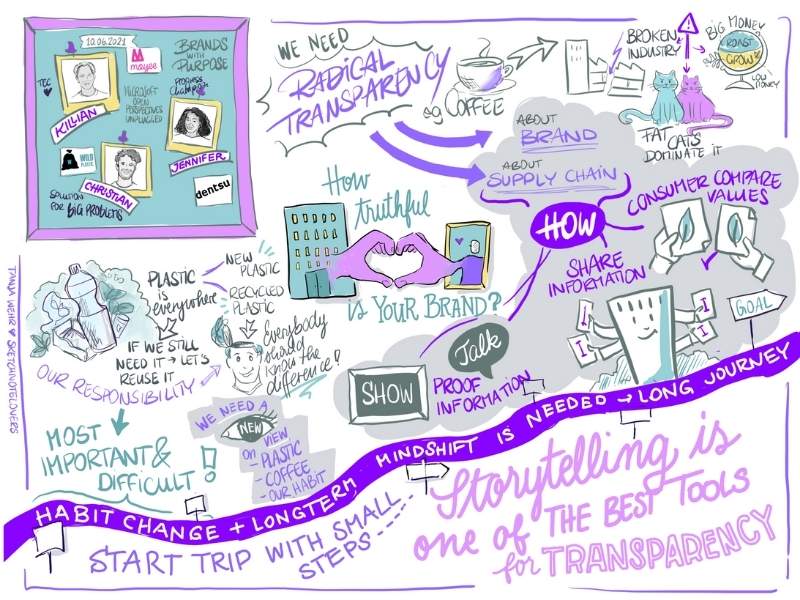 10.06.2021
mayee
BRANDS
WITH
PURPOSE
TBC
MICROSOFT
OPEN
PERSPECTIVES
UNPLUGGED
KILLIAN
JENNIFER
WILD
PLASTIC
CHRISTIAN
dentsu
SOLUTION
FOR BIG PROBLEMS
WE NEED
RADICAL
TRANSPARENCY
eg COFFEE
BROKEN
INDUSTRY
BIG MONEY
ROAST
GROW
LOW
MONEY
FAT
CATS
DOMINATE IT
ABOUT
BRAND
ABOUT
SUPPLY CHAIN
HOW
CONSUMER COMPARE
VALUES
SHARE
INFORMATION
GOAL
How
truthful
is YOUR BRAND?
Talk
SHOW
PROOF
INFORMATION
PLASTIC
is
everywhere
NEW
PLASTIC
RECYCLED
PLASTIC
IF WE STILL
NEED IT → LET'S
REUSE IT
Everybody
should
know the
difference?
OUR RESPONSIBILITY
MOST
IMPORTANT &
DIFFICULT!
WE NEED A
NEW
VIEW
on
- PLASTIC
- COFFEE
- OUR HABIT
HABIT CHANGE + LONGTERM MINDSHIFT IS NEEDED → LONG JOURNEY
START TRIP WITH SMALL
STEPS----
Storytelling is
one of THE BEST TOOLS
for TRANSPARENCY
TANJA WEHR ♥ SKETCHNOTELOVERS